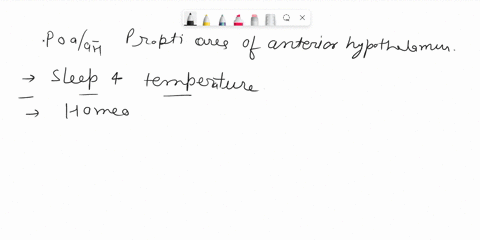 .Poa/aH Propti area of anterior hypothalamus.
→ Sleep & temperature
→ Homeo